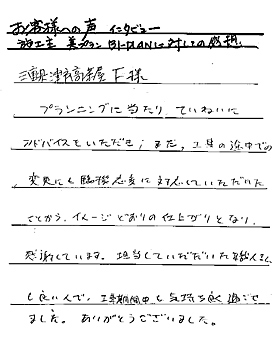 お客様への声 インタビュー
施工主 美プラン BI-PLANに対しての感想
三重県津市高茶屋 F様
プランニングに当たり、ていねいに
アドバイスをいただき；また、工事の途中での
変更にも臨機応変に対応していただいた
ことから、イメージどおりの仕上がりとなり、
感謝しています。担当していただいた職人さん
も良い人で、工事期間中も気持ち良く過ごせ
ました。ありがとうございました。